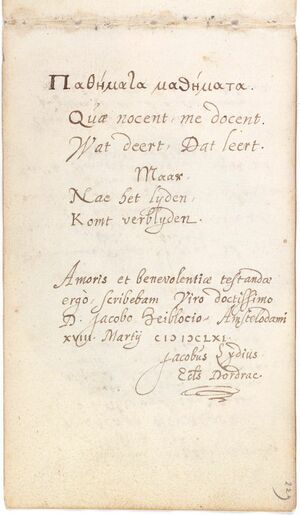 Παθήματα μαθήματα.
Quæ nocent, me docent.
Wat deert, Dat leert.
Maar,
Nae het lyden,
Komt verblyden.
Amoris et benevolentiæ testandæ
ergo, scribebam Viro doctissimo
D. Jacobo Heiblocio, Amstelodami
XVIII. Martij CIↃ IↃCLXI.
Jacobus Lydius
Eccl. Dordrac.
223